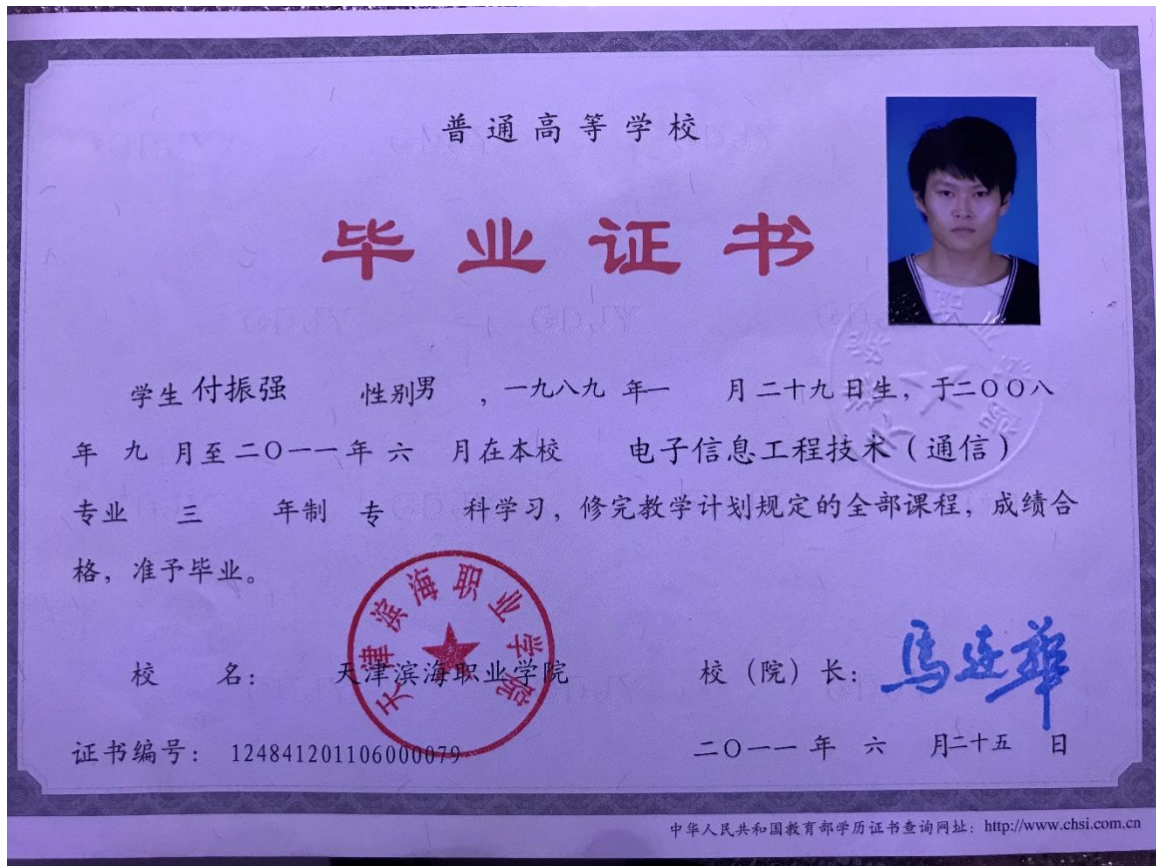 普通高等学校
毕业证书
学生 付振强 性别男 ，一九八九 年一 月二十九日生，于二〇〇八
年 九 月至二〇一一年 六 月在本校 电子信息工程技术（通信）
专业 三 年制 专 科学习，修完教学计划规定的全部课程，成绩合
格，准予毕业。
天津滨海职业学院
校 名： 天津滨海职业学院 校（院）长：马连华
证书编号： 124841201106000079 二〇一一 年 六 月二十五 日
中华人民共和国教育部学历证书查询网址：http://www.chsi.com.cn